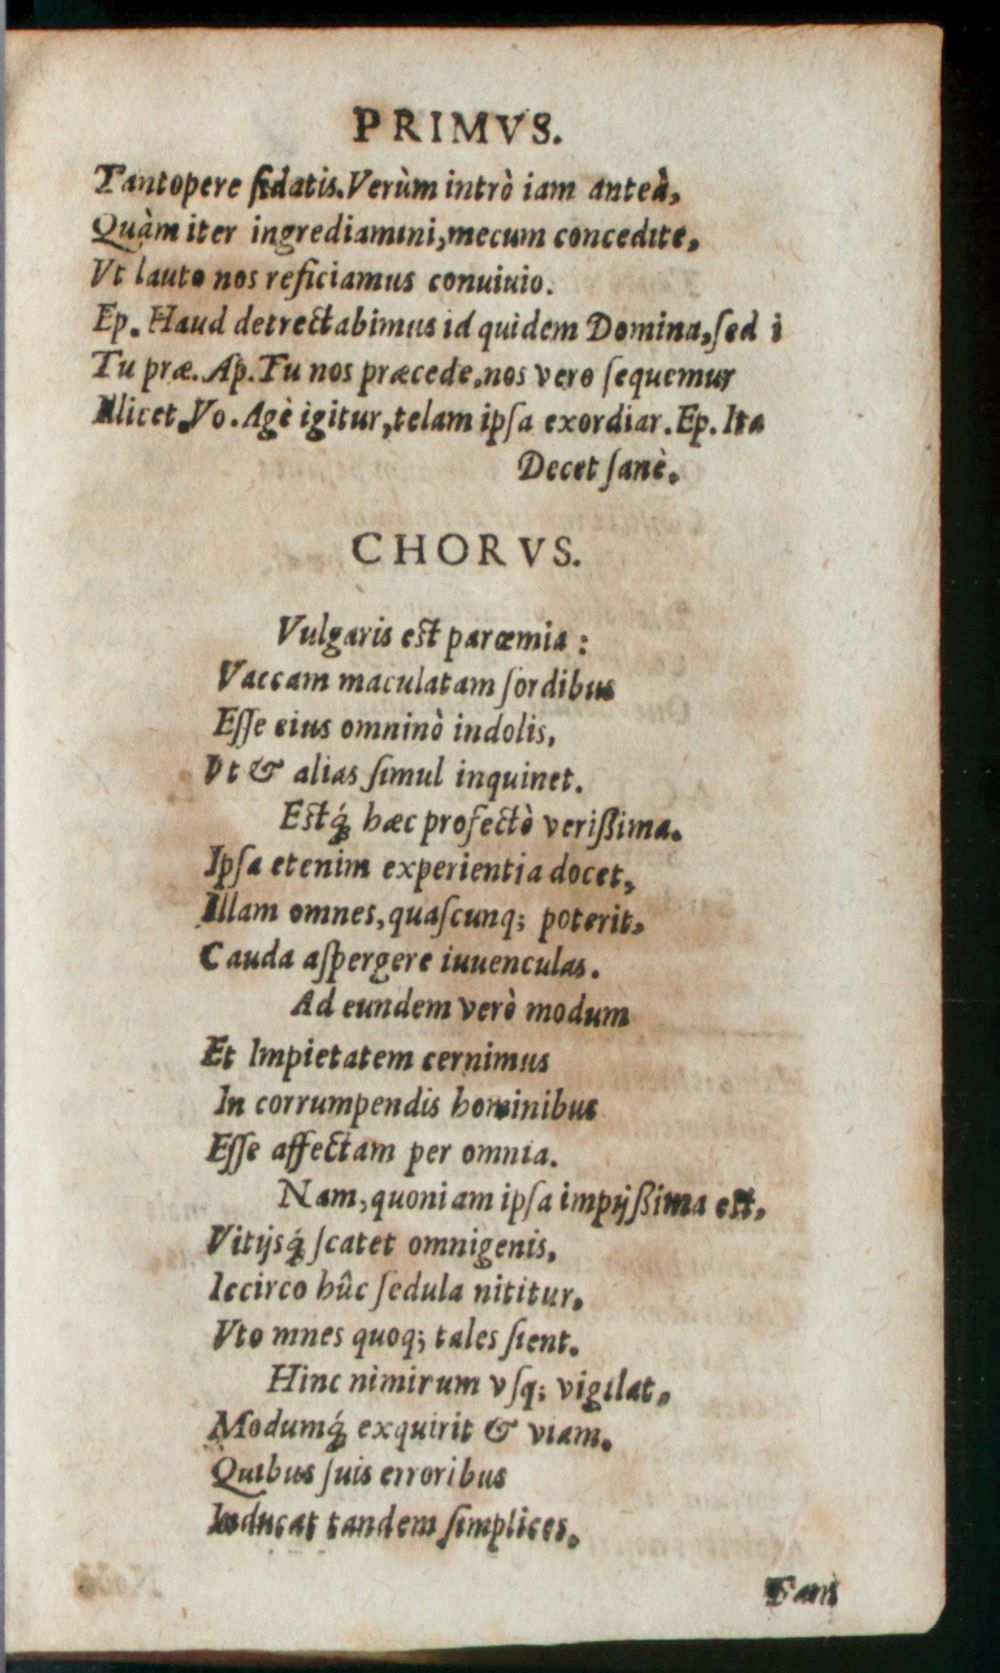 PRIMVS.
Tantopere fidatis. Verùm intrò iam anteà,
Quàm iter ingrediamini, mecum concedite,
Vt lauto nos reficiamus conuiuio.
Ep. Haud detrectabimus id quidem Domina, ſed ì
Tu præ. Ap. Tu nos præcede, nos vero ſequemur
Illicet. Vo. Agè igitur, telam ipſa exordiar. Ep. Ita
Decet ſanè.
CHORVS.
Vulgaris est parœmia:
Vaccam maculatam ſordibus
Eſſe eius omninò indolis,
Vt & alias ſimul inquinet.
Estq́; hæc profectò verißima.
Ipſa etenim experientia docet,
Illam omnes, quaſcunq; poterit,
Cauda aſpergere iuuenculas.
Ad eundem verò modum
Et Impietatem cernimus
In corrumpendis hominibus
Eſſe affectam per omnia.
Nam, quoniam ipſa impijßima est,
Vitijsq́; ſcatet omnigenis,
Iccirco hûc ſedula nititur,
Vto mnes quoq; tales ſient.
Hinc nimirum vſq; vigilat,
Modumq́; exquirit & viam,
Quibus ſuis erroribus
Inducat tandem ſimplices.
Fam